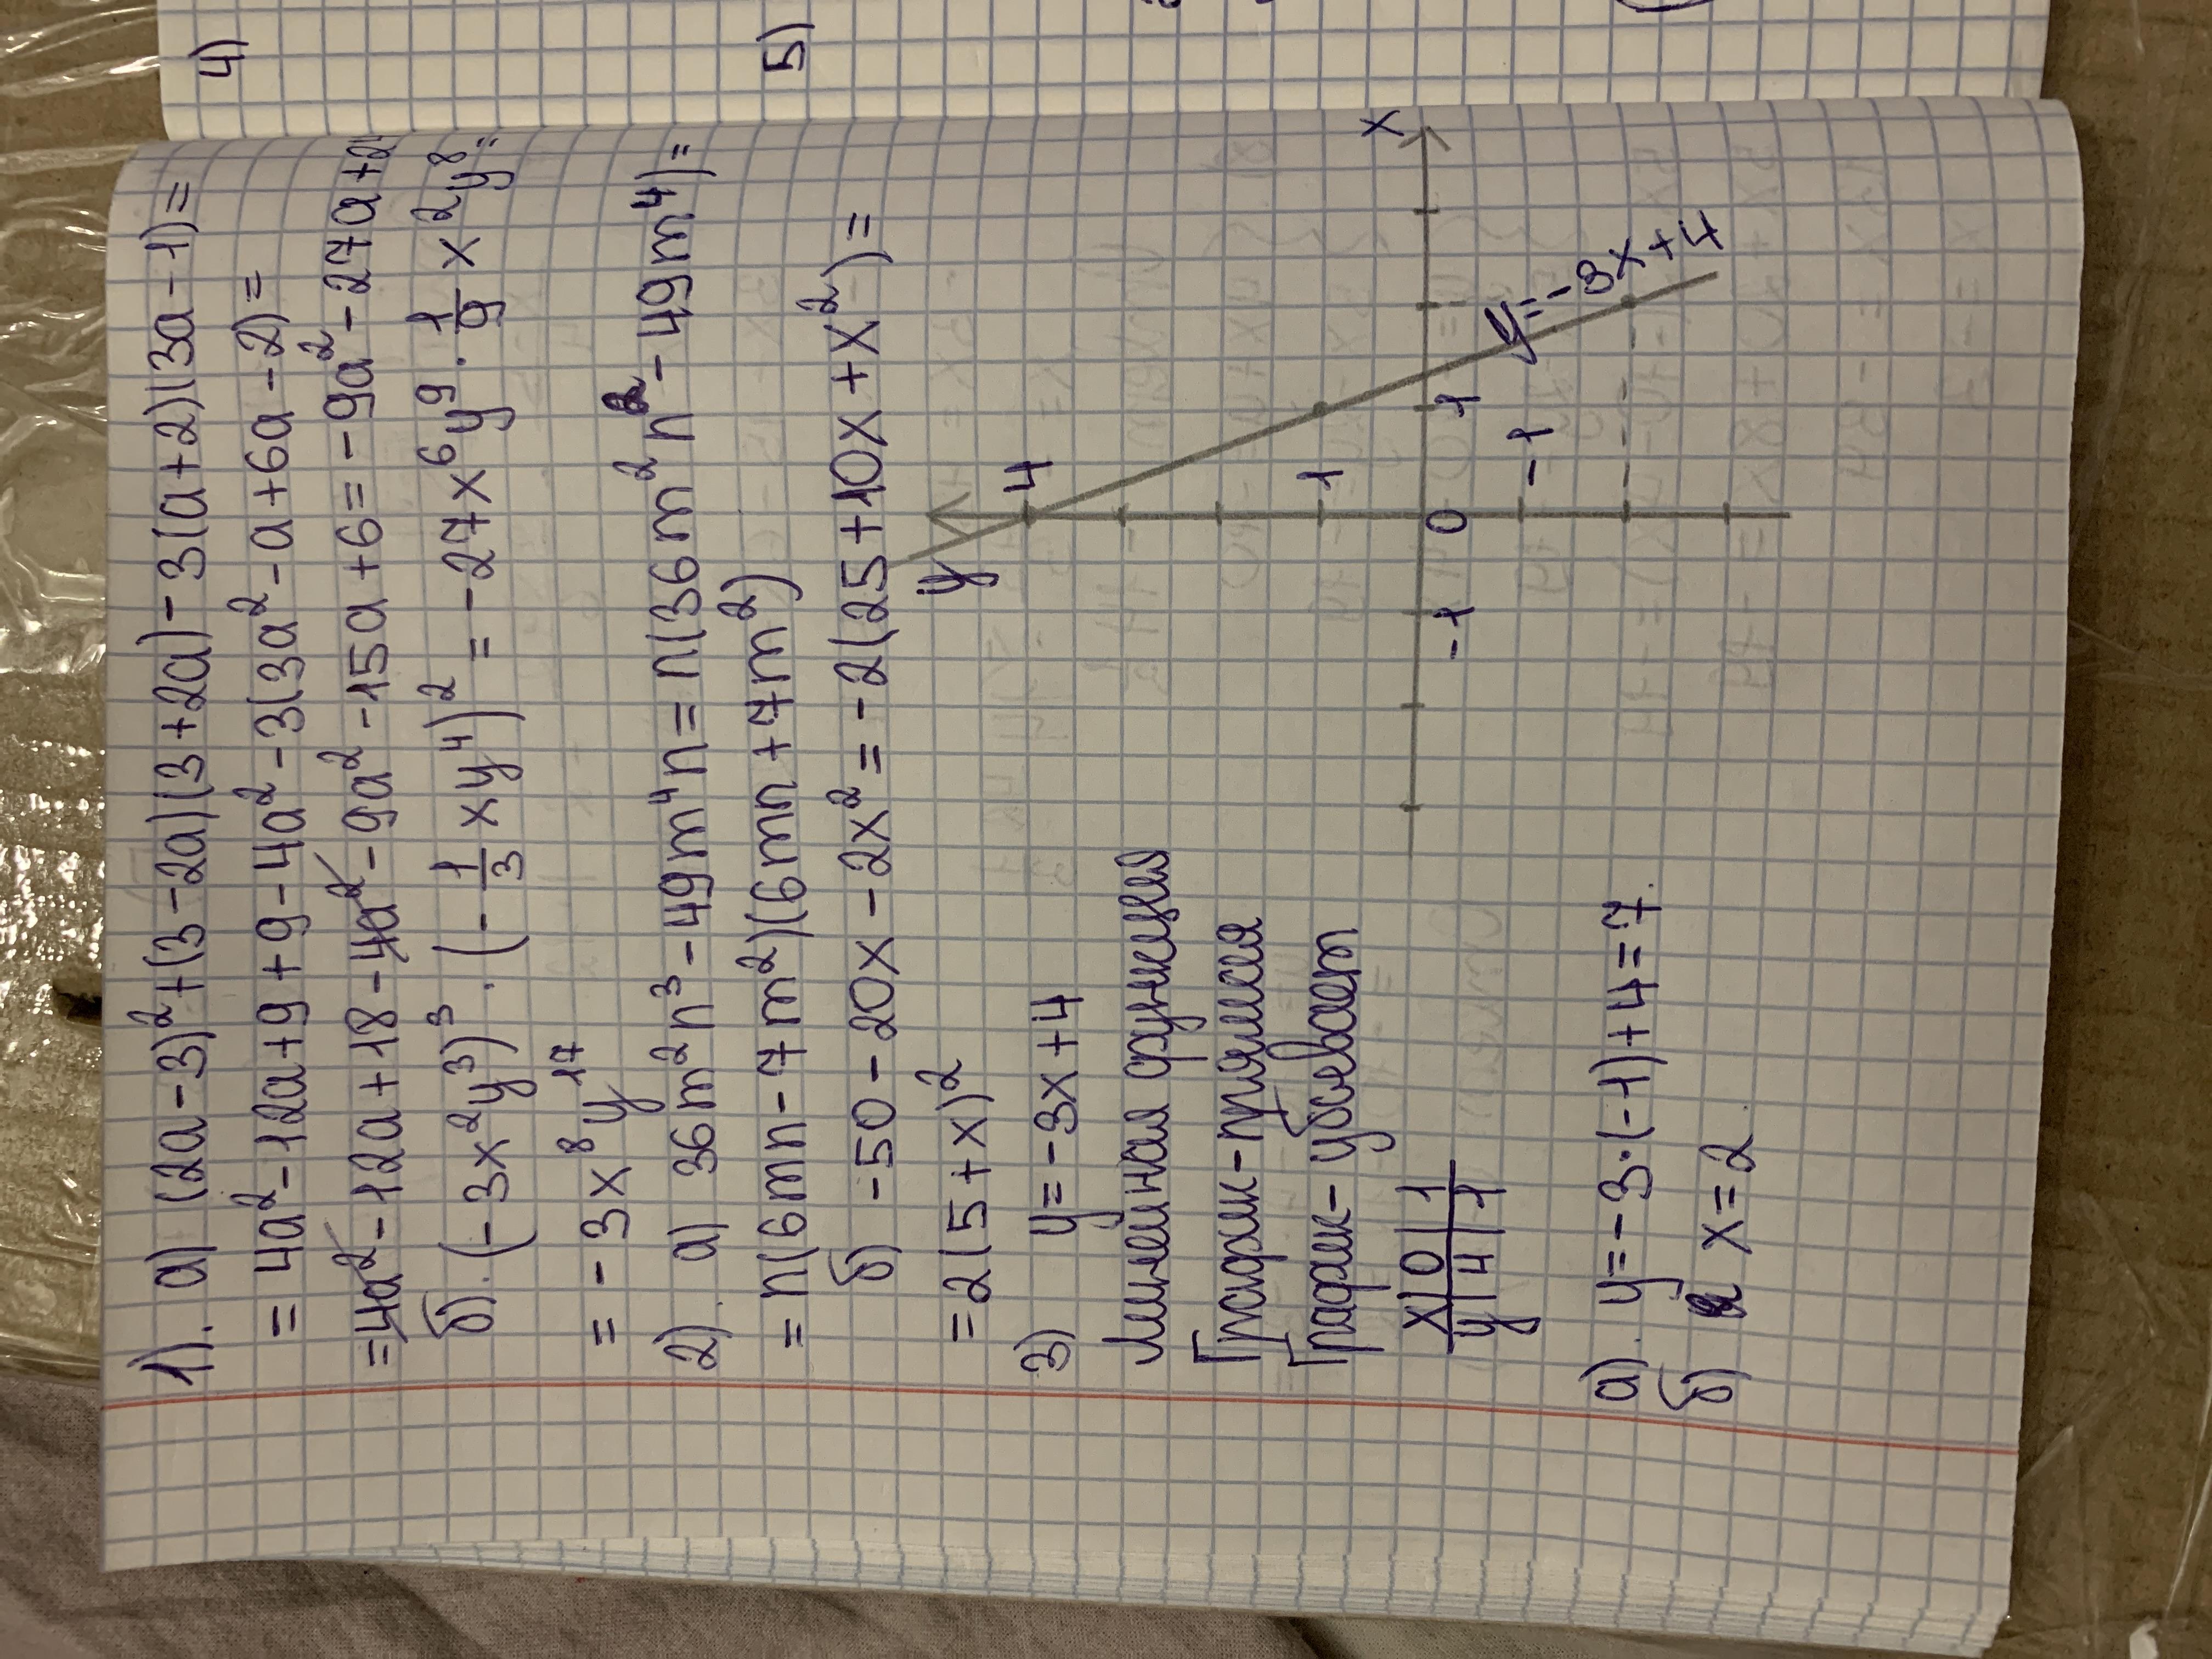 1). а) (2a-3)²+(3-2a)(3+2a)-3(a+2)(3a-1)=
= 4a²-12a+9+9-4a²-3(3a²-a+6a-2)=
=4a²-12a+18-4a²-9a²-15a+6=-9a²-27a+2
б). (-3x²y³)³ · (-1/3 xy⁴)² = -27x⁶y⁹ · 1/9 x²y⁸=
= -3x⁸y¹⁷
2). а) 36m²n³-49m⁴n=n(36m²n²-49m⁴)=
= n(6mn-7m²)(6mn+7m²)
б) -50-20x-2x²=-2(25+10x+x²)=
=2(5+x)²
3) y=-3x+4
Линейная функция
График-прямая
График-убывает
x|0|1
y|4|1
y
4
1
0
-1
-1
1
x
y=-3x+4
а). y=-3·(-1)+4=7.
б) x=2
4)
5)